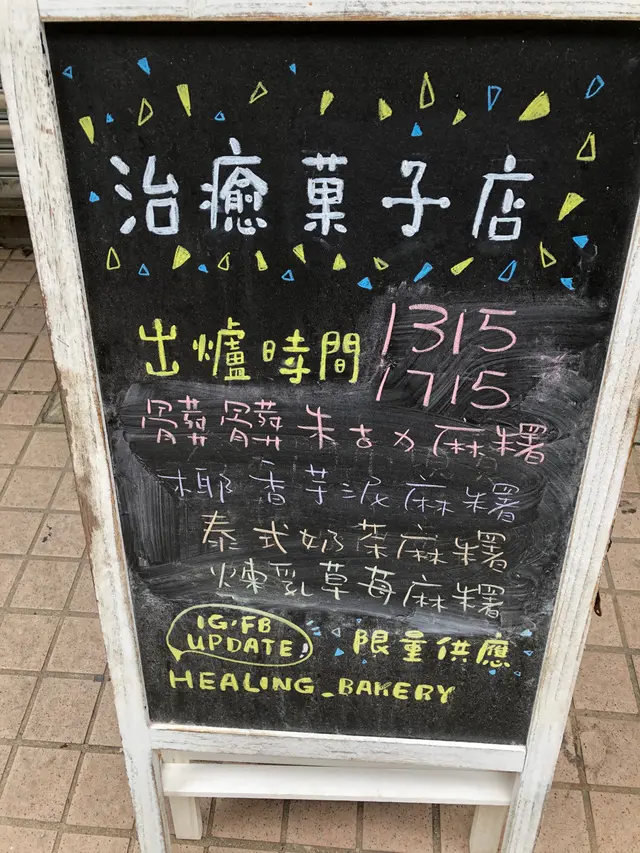 治癒菓子店
出爐時間 1315
1715
髒髒朱古力麻糬
椰香芋泥麻糬
泰式奶茶麻糬
煉乳草莓麻糬
IG,FB
UPDATE!
限量供應
HEALING_BAKERY